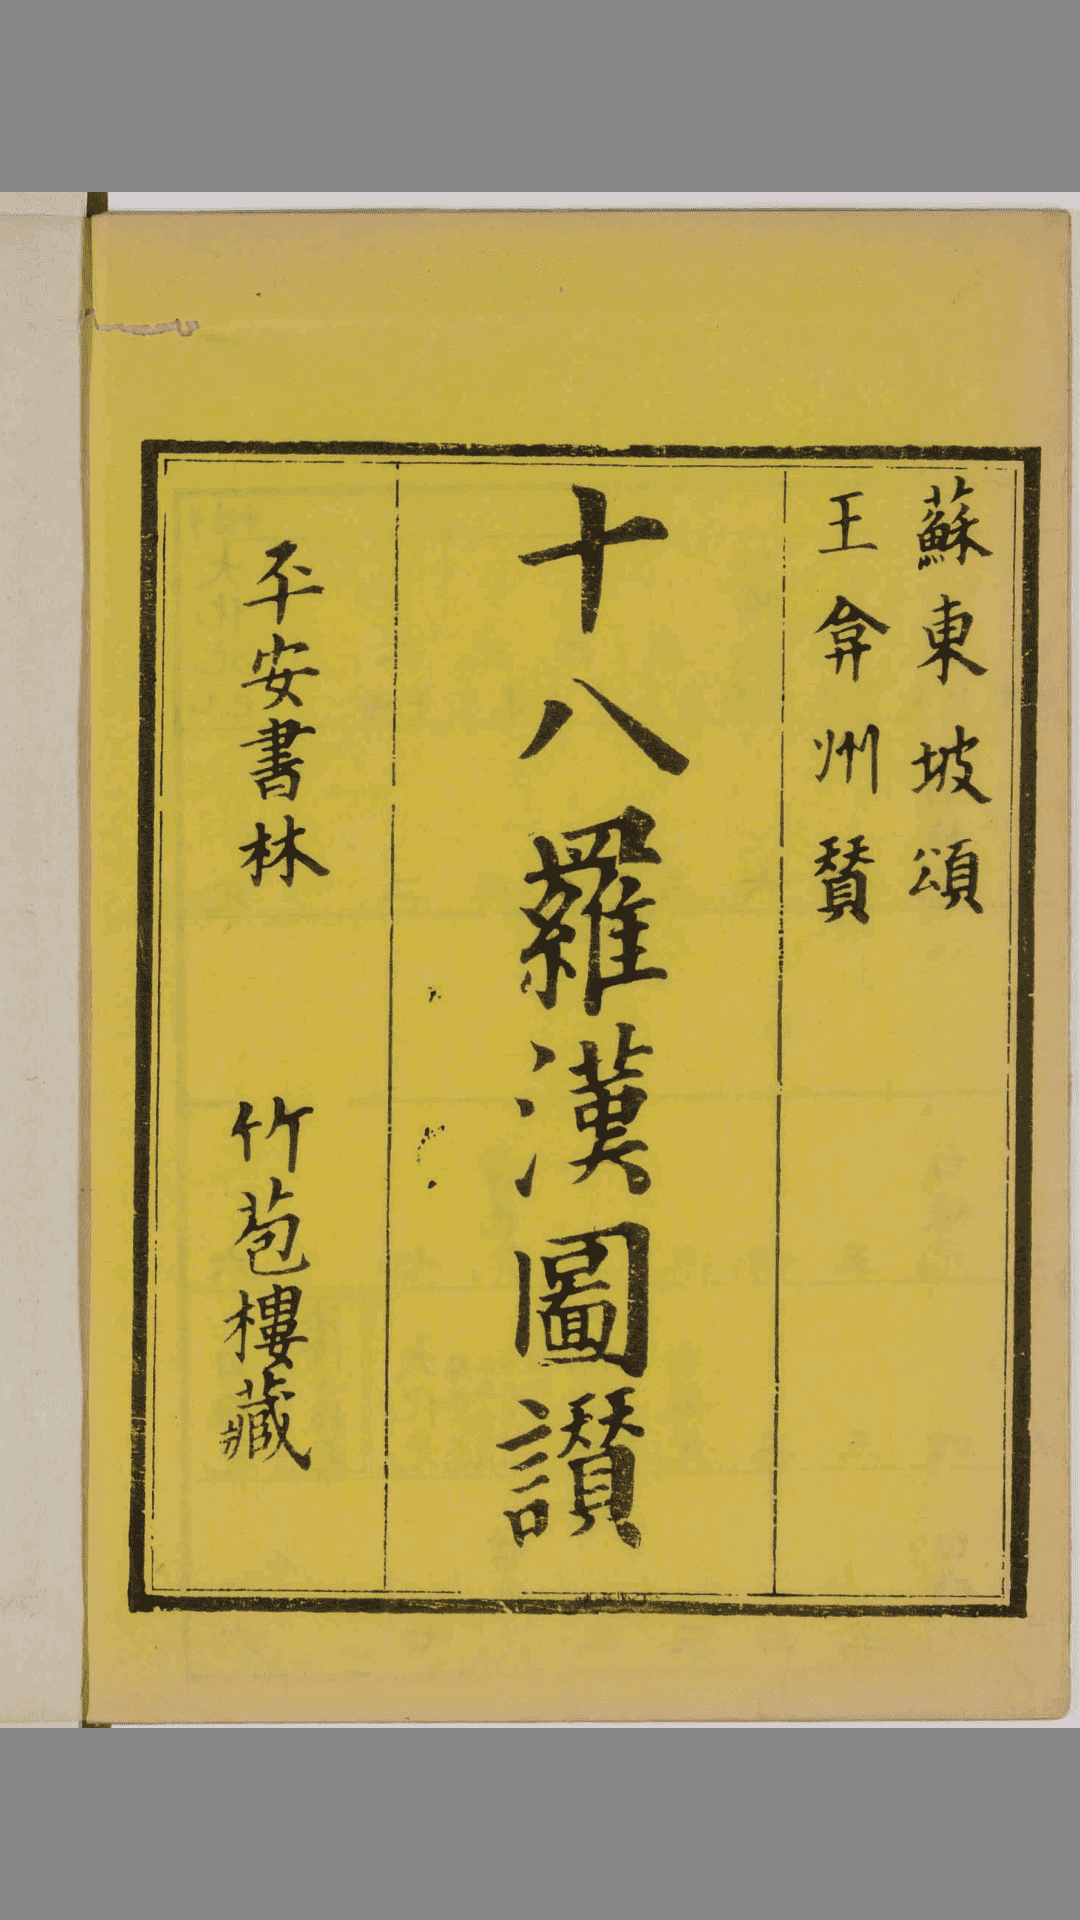 蘇東坡頌
王弇州贊
十八羅漢圖讃
平安書林 竹苞樓藏